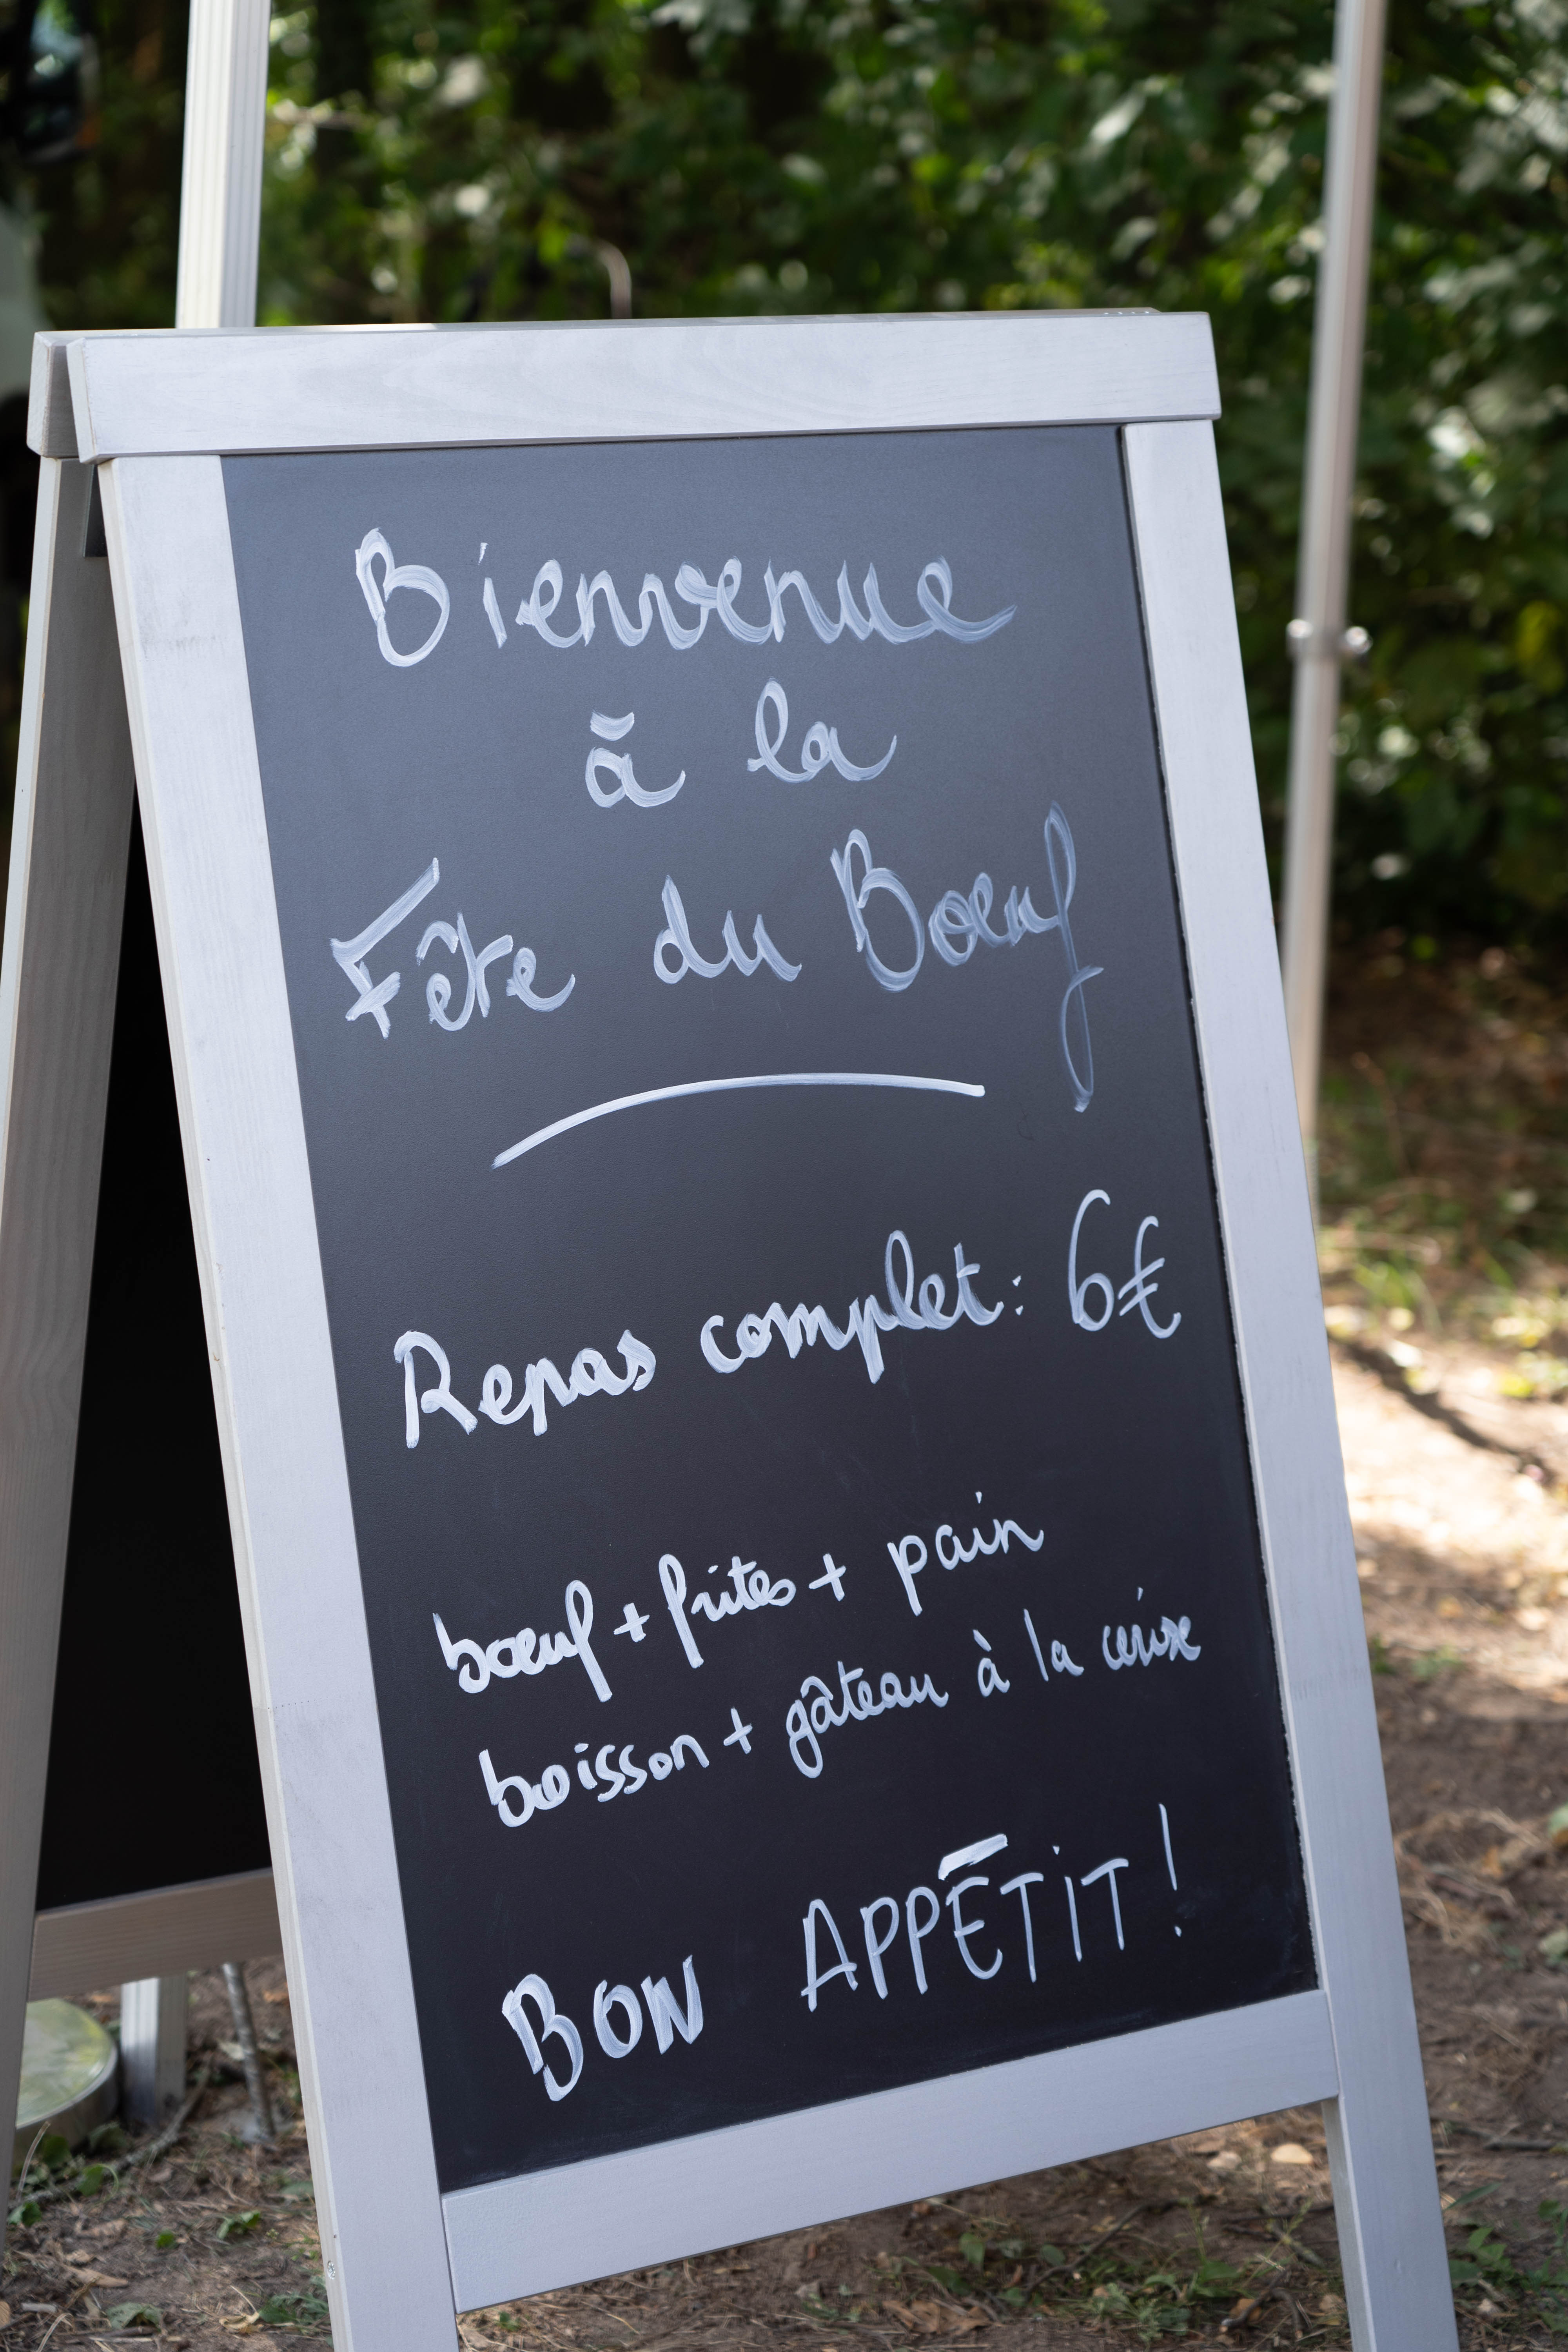 Bienvenue
à la
Fête du Bœuf
Repas complet : 6€
bœuf + frites + pain
boisson + gâteau à la cerise
BON APPÉTIT !